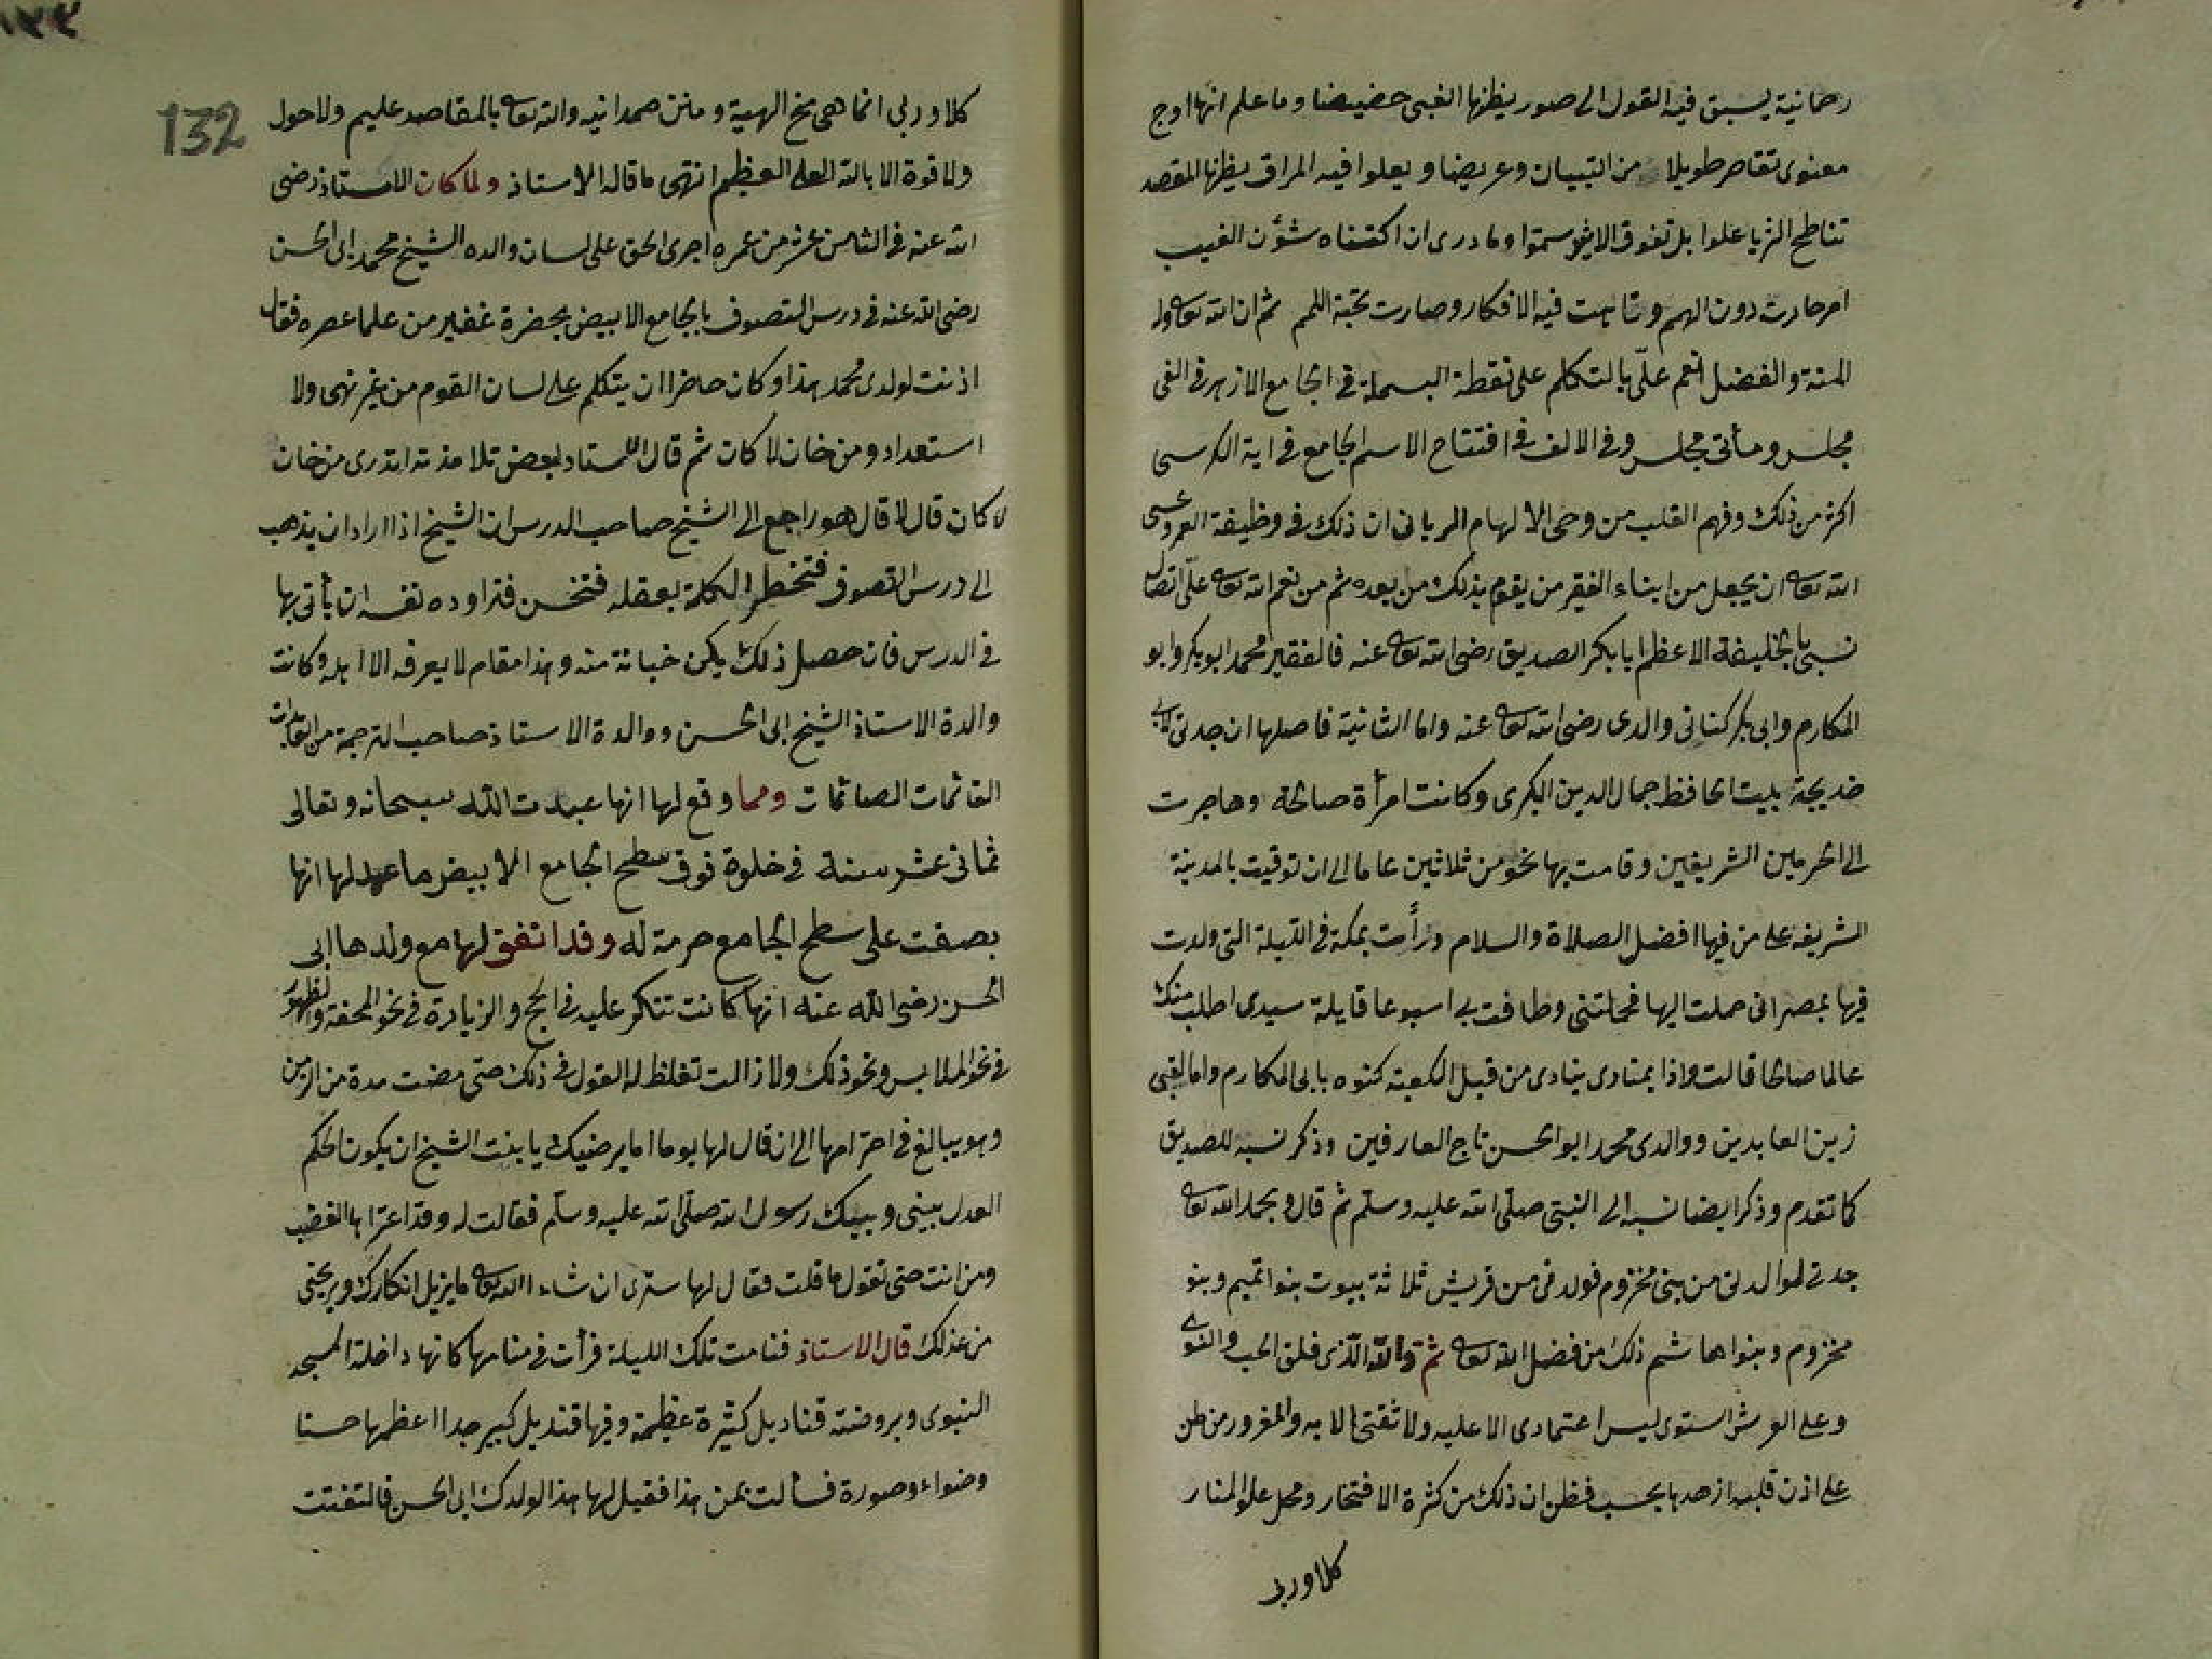 رحمانية يسبق فيه القول الى صور يظنها الغبى حضيضا وما علم انها اوج
معنوى تقاصر طويلا من التبيان وعريضا ويعلوا فيه المراق يظنها المقصد
تناطح الثريا علوا بل تفوق الاثير سموا وما درى ان اكتنفاه شؤن الغيب
امر حارت دون الهمم وتاهت فيه الافكار وصارت تحته اللمم ثم ان الله تعا وله
المنة والفضل انعم علىّ بالتكلم على نقطة البسملة في الجامع الازهر في الفى
مجلس ومأتى مجلس وفى الالف فى افتتاح الاسم الجامع فى اية الكرسى
اكثر من ذلك وفهم القلب من وحى الالهام الربانى ان ذلك فى وظيفة العمر وعسى
الله تعا ان يجعل من ابناء الفقير من يقوم بذلك من بعده ثم من نعم الله تعا علىّ اتصال
نسبى بالخليفة الاعظم ابا بكر الصديق رضى الله تعا عنه فالفقير محمد ابو بكر وابو
المكارم وابى بكر كنانى والدى رضى الله تعا عنه واما الثانية فاصلها ان جدتى لابى
خديجة ببيت الحافظ جمال الدين البكرى وكانت امرأة صالحة وهاجرت
الى الحرمين الشريفين وقامت بها نحو من ثلاثين عاما الى ان توفيت بالمدينة
الشريفه على من فيها افضل الصلاة والسلام ورأت بمكة فى الليلة التى ولدت
فيها بمصر انى حملت اليها فحملتنى وطافت بى اسبوعا قايلة سيدى اطلب منك
عالما صالحا قالت واذا بمنادى ينادى من قبل الكعبة كنوه بابى المكارم واما لقبى
زين العابدين ووالدى محمد ابو الحسن تاج العارفين وذكر نسبه للصديق
كما تقدم وذكر ايضا نسبه الى النبىّ صلى الله عليه وسلم ثم قال وبحمد الله تعا
جدتى لوالدتى من بنى مخزوم فولدنى من قريش ثلاثة بيوت بنوا تميم وبنو
مخزوم وبنوا هاشم ذلك من فضل الله تعا ثم والله الذى فلق الحب والنوى
وعلى العرش استوى ليس اعتمادى الا عليه ولا ثقتى الا به والمغرور من ظن
على اذن قلبه ازهد بما يحسب فظن ان ذلك من كثرة الافتخار ومحل علو المنار
كلا وربى
132
كلا وربى انما هى منح الهية ومنن صمدانيه والله تعا بالمقاصد عليم ولا حول
ولا قوة الا بالله العلى العظيم انتهى ما قاله الاستاذ ولما كان الاستاذ رضى
الله عنه فى الثامن عشرة من عمره اجرى الحق على لسان والده الشيخ محمد ابى الحسن
رضى الله عنه فى درس التصوف بالجامع الابيض بحضرة غفير من علما عصره فقال
اذنت لولدى محمد هذا وكان حاضرا ان يتكلم على لسان القوم من غير نهى ولا
استعداد ومن خان لا كان ثم قال الاستاد لبعض تلامذته اتدرى من خان
لا كان قال لا قال هو راجع الى الشيخ صاحب الدرس ان الشيخ اذا اراد ان يذهب
الى درس التصوف فتخطر الكلمة بعقله فتحسن فتراوده نفسه ان يأتى بها
فى الدرس فان حصل ذلك يكن خيانة منه وهذا مقام لا يعرفه الا اهله وكانت
والدة الاستاذ الشيخ ابى الحسن ووالدة الاستاذ صاحب الترجمة من القانتات
القائمات الصائمات ومما وقع لها انها عبدت الله سبحانه وتعالى
ثمانى عشر سنة فى خلوة فوق سطح الجامع الابيض ما عهد لها انها
بصقت على سطح الجامع حرمة له وقد اتفق لها مع ولدها ابى
الحسن رضى الله عنه انها كانت تنكر عليه فى الحج والزيارة فى نحو المحفة والظهور
فى نحو الملابس ونحو ذلك ولا زالت تغلظ له القول فى ذلك حتى مضت مدة من الزمن
وهو يبالغ فى احترامها الى ان قال لها يوما اما يرضيك يا بنت الشيخ ان يكون الحكم
العدل بينى وبينك رسول الله صلى الله عليه وسلم فقالت له وقد اعتراها الغضب
ومن انت حتى تقول ما قلت فقال لها سترى ان شاء الله تعا ما يزيل انكارك ويريحنى
من عذلك قال الاستاذ فنامت تلك الليلة فرأت فى منامها كانها داخلة المسجد
النبوى وبروضته قناديل كثيرة عظيمة وفيها قنديل كبير جدا اعظمها حسنا
وضواء وصورة فسألت لمن هذا فقيل لها هذا لولدك ابى الحسن فالتفتت